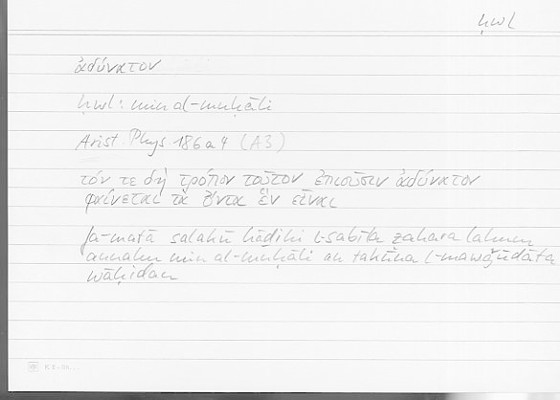 ḥwl
ἀδύνατον
ḥwl: min al-muḥāli
Arist. Phys. 186a4 (A3)
τόν τε δὴ τρόπον τοῦτον ἐπιοῦσιν ἀδύνατον
φαίνεται τὰ ὄντα ἓν εἶναι
fa-matā salakū hāḏihi l-sabīla ẓahara lahum
annahu min al-muḥāli an takūna l-mawǧūdāta
wāḥidan